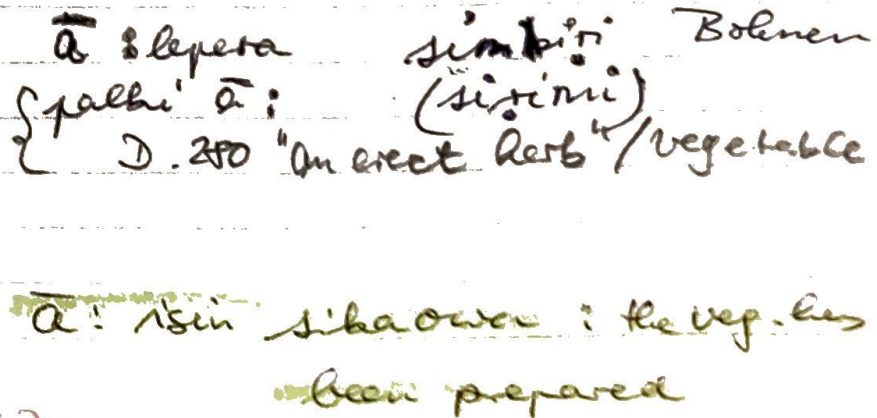 ā : lepera simbiri Bohnen
palki ā : (siṛimi)
D. 280 "An erect herb" / vegetable
ā : isin sikaowa : the veg. has
been prepared